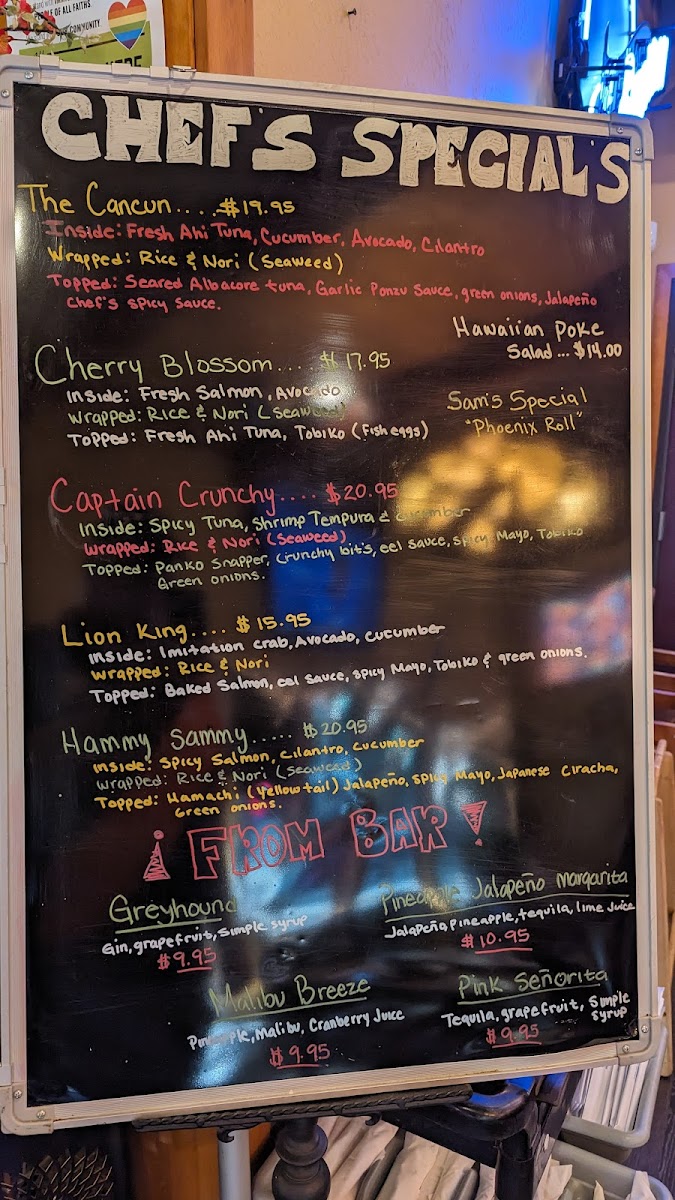 PLE OF ALL FAITHS.
COMMUNITY.
CHEF'S SPECIAL'S
The Cancun.....$19.95
Inside: Fresh Ahi Tuna, Cucumber, Avocado, Cilantro
Wrapped: Rice & Nori (Seaweed)
Topped: Seared Albacore tuna, Garlic Ponzu Sauce, green onions, Jalapeño
Chef's Spicy Sauce.
Hawaiian Poke
Salad ... $14.00
Cherry Blossom..... $17.95
Inside: Fresh Salmon, Avocado
Wrapped: Rice & Nori (Seaweed)
Topped: Fresh Ahi Tuna, Tobiko (Fish eggs)
Sam's Special
"Phoenix Roll"
Captain Crunchy.... $20.95
Inside: Spicy Tuna, Shrimp Tempura & Cucumber
Wrapped: Rice & Nori (Seaweed)
Topped: Panko Snapper, Crunchy bit's, eel sauce, spicy Mayo, Tobiko
Green onions.
Lion King.... $15.95
Inside: Imitation crab, Avocado, cucumber
Wrapped: Rice & Nori
Topped: Baked Salmon, eal sauce, spicy Mayo, Tobiko & green onions.
Hammy Sammy..... $20.95
Inside: Spicy Salmon, Cilantro, Cucumber
Wrapped: Rice & Nori (Seaweed)
Topped: Hamachi (Yellow tail) Jalapeño, spicy Mayo, Japanese Ciracha,
Green onions.
¡FROM BAR!
Greyhound
Gin, grapefruit, Simple syrup
$9.95
Pineapple Jalapeño Margarita
Jalapeño, pineapple, tequila, lime Juice
$10.95
Malibu Breeze
Pineapple, Malibu, Cranberry Juice
$9.95
Pink Señorita
Tequila, grapefruit, Simple
syrup
$9.95